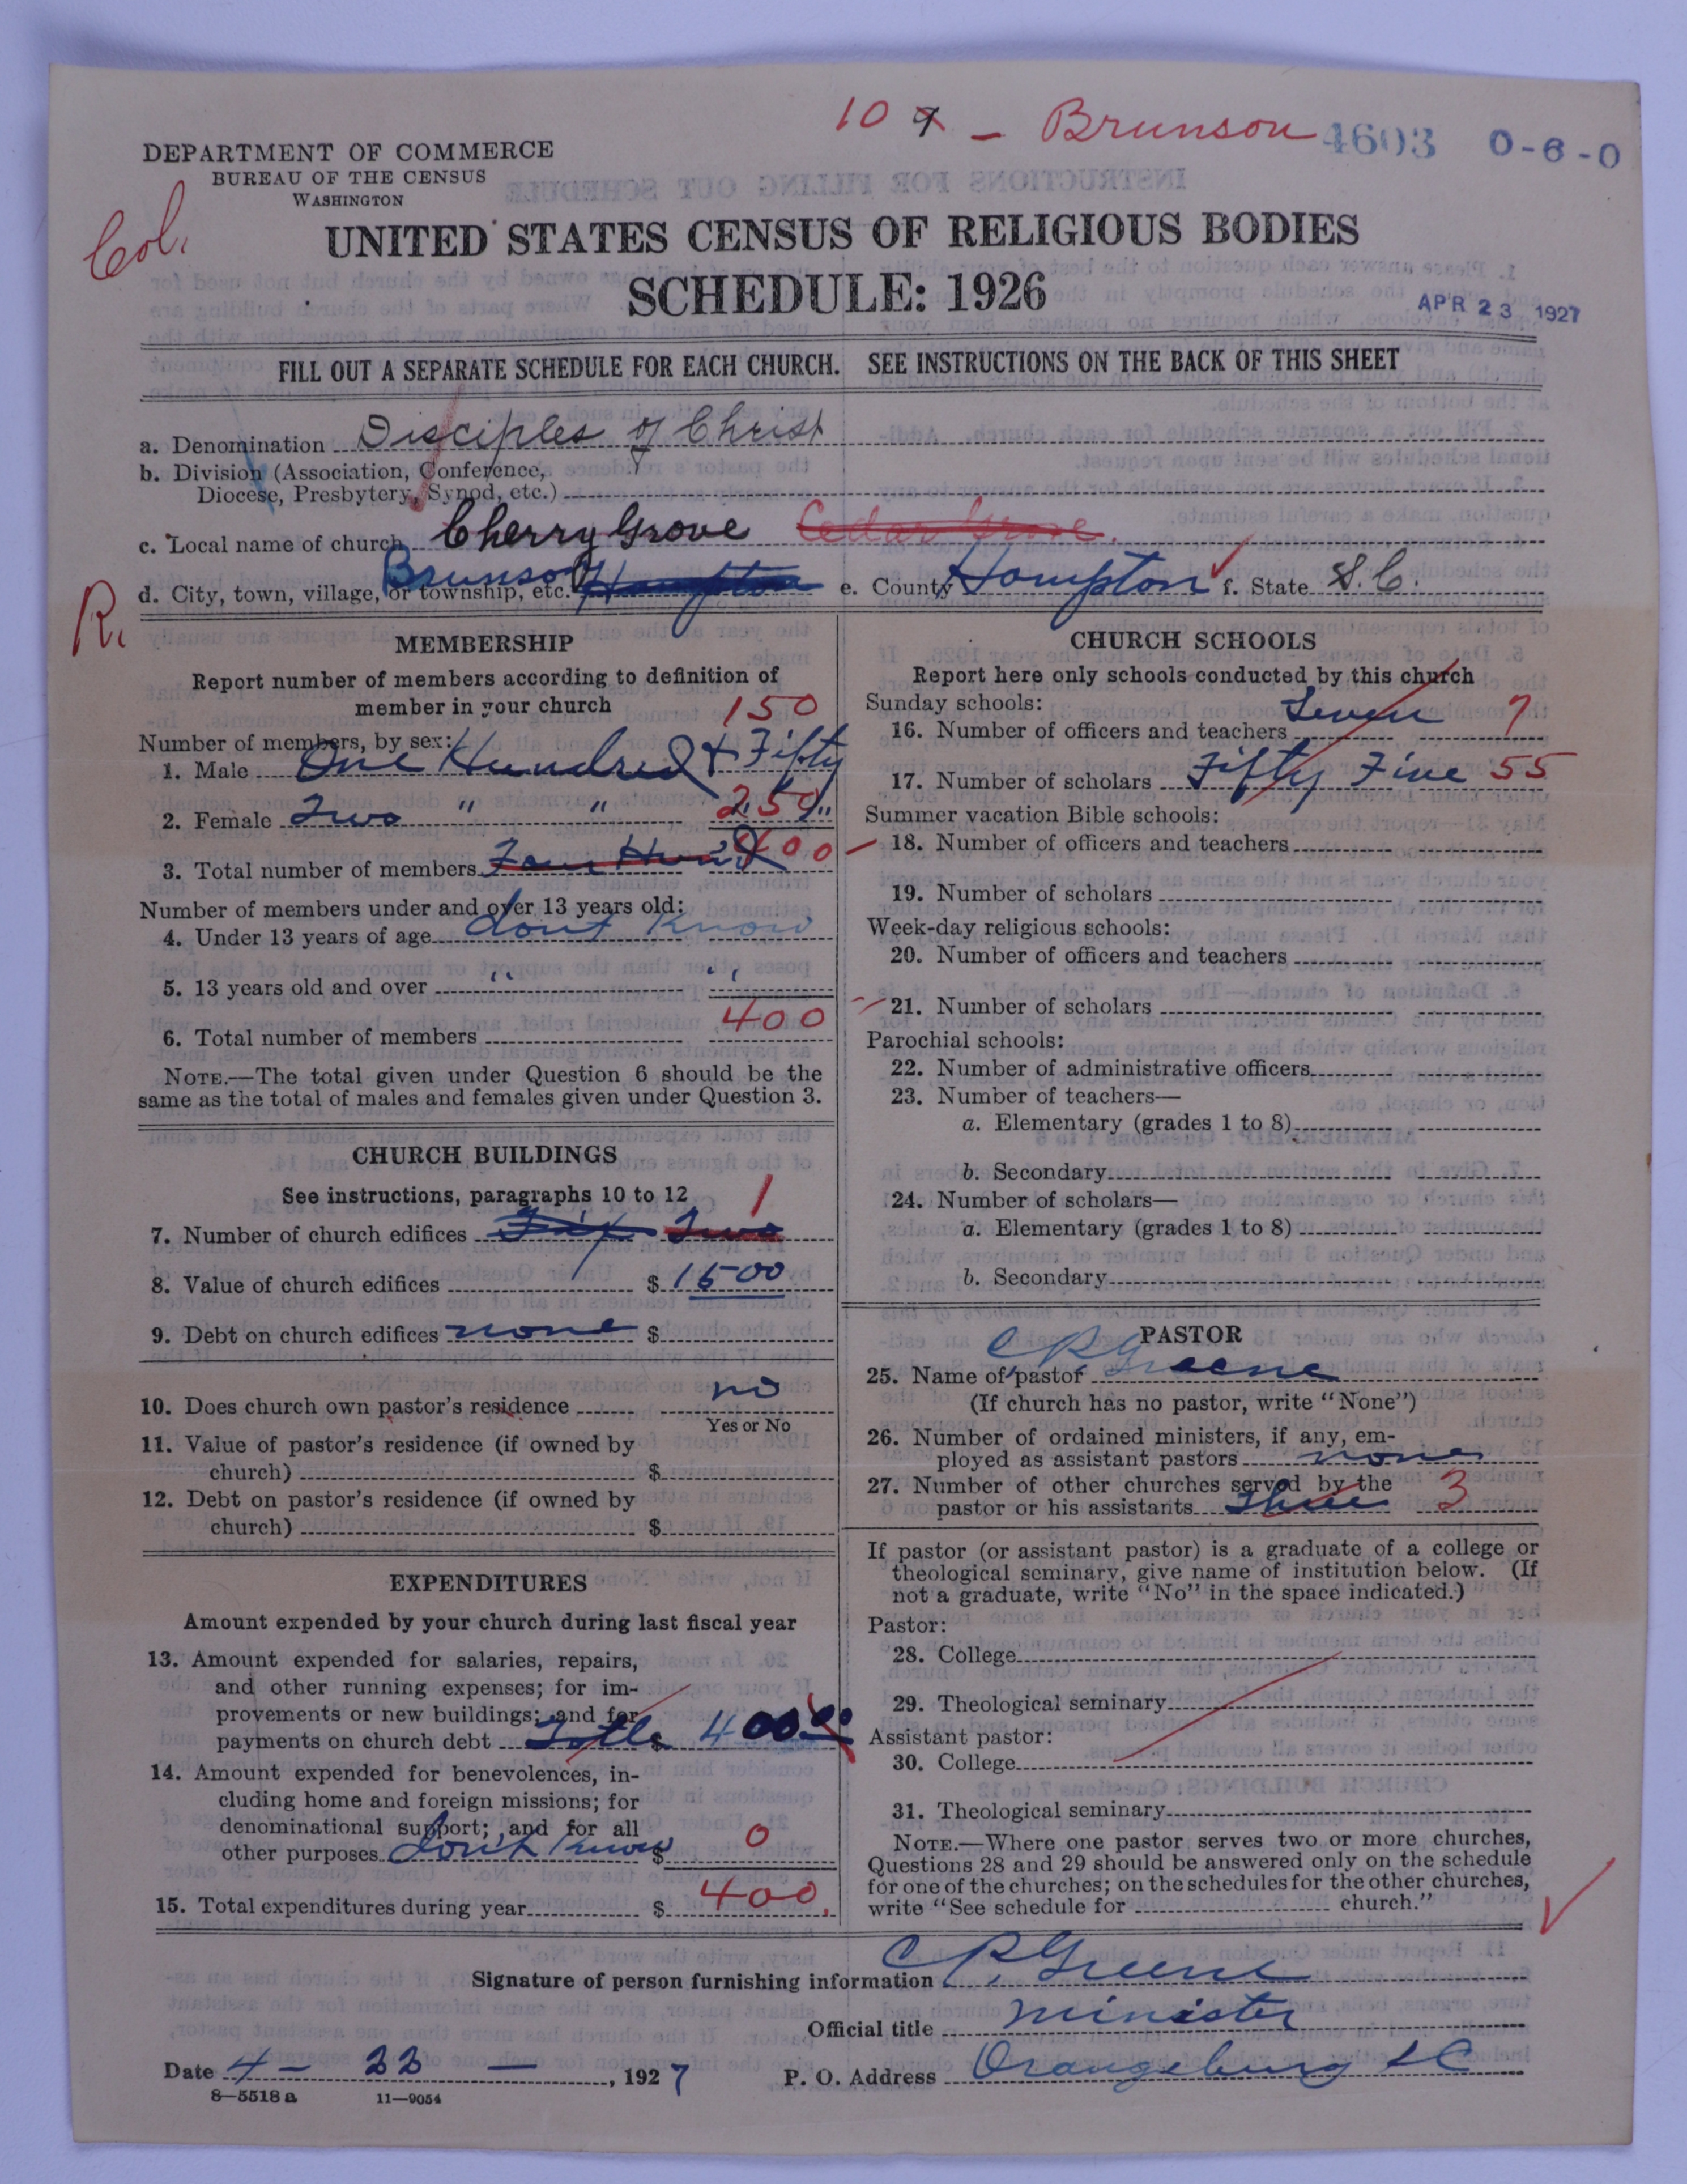 10 9 - Brunson 4603 0-6-0
DEPARTMENT OF COMMERCE
BUREAU OF THE CENSUS
WASHINGTON
Col.
UNITED STATES CENSUS OF RELIGIOUS BODIES
SCHEDULE: 1926
APR 23 1927
FILL OUT A SEPARATE SCHEDULE FOR EACH CHURCH. SEE INSTRUCTIONS ON THE BACK OF THIS SHEET
a. Denomination Disciples of Christ
b. Division (Association, Conference,
Diocese, Presbytery, Synod, etc.)
c. Local name of church Cherry Grove Cedar Grove.
d. City, town, village, or township, etc. Brunson Hampton e. County Hampton f. State S.C.
R.
MEMBERSHIP
Report number of members according to definition of
member in your church
150
Number of members, by sex:
1. Male One Hundred & Fifty
2. Female Two " " 250 "
3. Total number of members Four Hund 400
Number of members under and over 13 years old:
4. Under 13 years of age dont Know
5. 13 years old and over " "
6. Total number of members 400
NOTE.—The total given under Question 6 should be the
same as the total of males and females given under Question 3.
CHURCH BUILDINGS
See instructions, paragraphs 10 to 12
1
7. Number of church edifices Two
8. Value of church edifices $ 1500
9. Debt on church edifices none $
10. Does church own pastor's residence no
Yes or No
11. Value of pastor's residence (if owned by
church) $
12. Debt on pastor's residence (if owned by
church) $
EXPENDITURES
Amount expended by your church during last fiscal year
13. Amount expended for salaries, repairs,
and other running expenses; for im-
provements or new buildings; and for
payments on church debt Totle $ 400 00
14. Amount expended for benevolences, in-
cluding home and foreign missions; for
denominational support; and for all
other purposes don't Know $ 0
15. Total expenditures during year $ 400.
CHURCH SCHOOLS
Report here only schools conducted by this church
Sunday schools:
16. Number of officers and teachers Seven 7
17. Number of scholars Fifty Five 55
Summer vacation Bible schools:
18. Number of officers and teachers
19. Number of scholars
Week-day religious schools:
20. Number of officers and teachers
21. Number of scholars
Parochial schools:
22. Number of administrative officers
23. Number of teachers—
a. Elementary (grades 1 to 8)
b. Secondary
24. Number of scholars—
a. Elementary (grades 1 to 8)
b. Secondary
PASTOR
25. Name of pastor C P Greene
(If church has no pastor, write "None")
26. Number of ordained ministers, if any, em-
ployed as assistant pastors none
27. Number of other churches served by the
pastor or his assistants Three 3
If pastor (or assistant pastor) is a graduate of a college or
theological seminary, give name of institution below. (If
not a graduate, write "No" in the space indicated.)
Pastor:
28. College
29. Theological seminary
Assistant pastor:
30. College
31. Theological seminary
NOTE.—Where one pastor serves two or more churches,
Questions 28 and 29 should be answered only on the schedule
for one of the churches; on the schedules for the other churches,
write "See schedule for church."
Signature of person furnishing information C P Greene
Official title minister
Date 4 - 22 - , 1927 P. O. Address Orangeburg S C
8-5518 a 11-9054